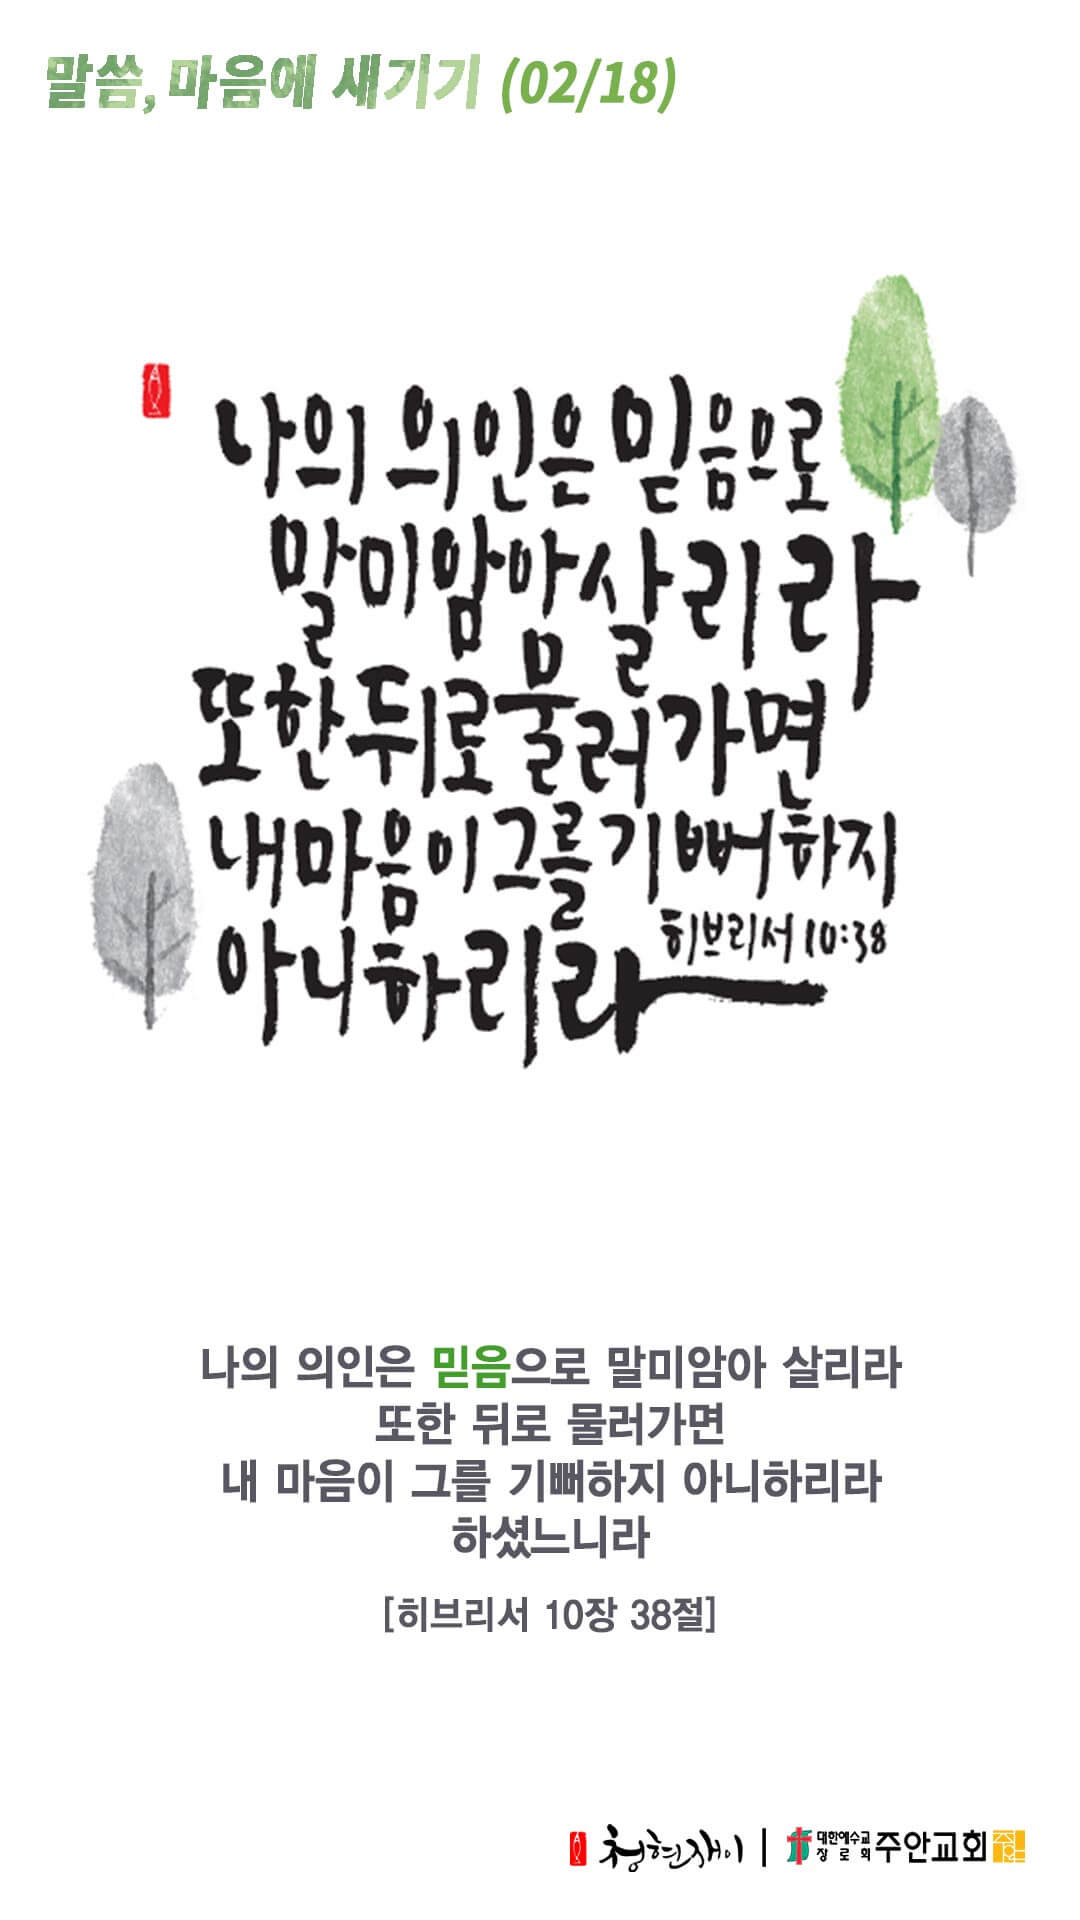 말씀, 마음에 새기기 (02/18)
나의 의인은 믿음으로
말미암아 살리라
또한 뒤로 물러가면
내 마음이 그를 기뻐하지
아니하리라
히브리서 10:38
나의 의인은 믿음으로 말미암아 살리라
또한 뒤로 물러가면
내 마음이 그를 기뻐하지 아니하리라
하셨느니라
[히브리서 10장 38절]
청현재이 | 대한예수교
장로회 주안교회